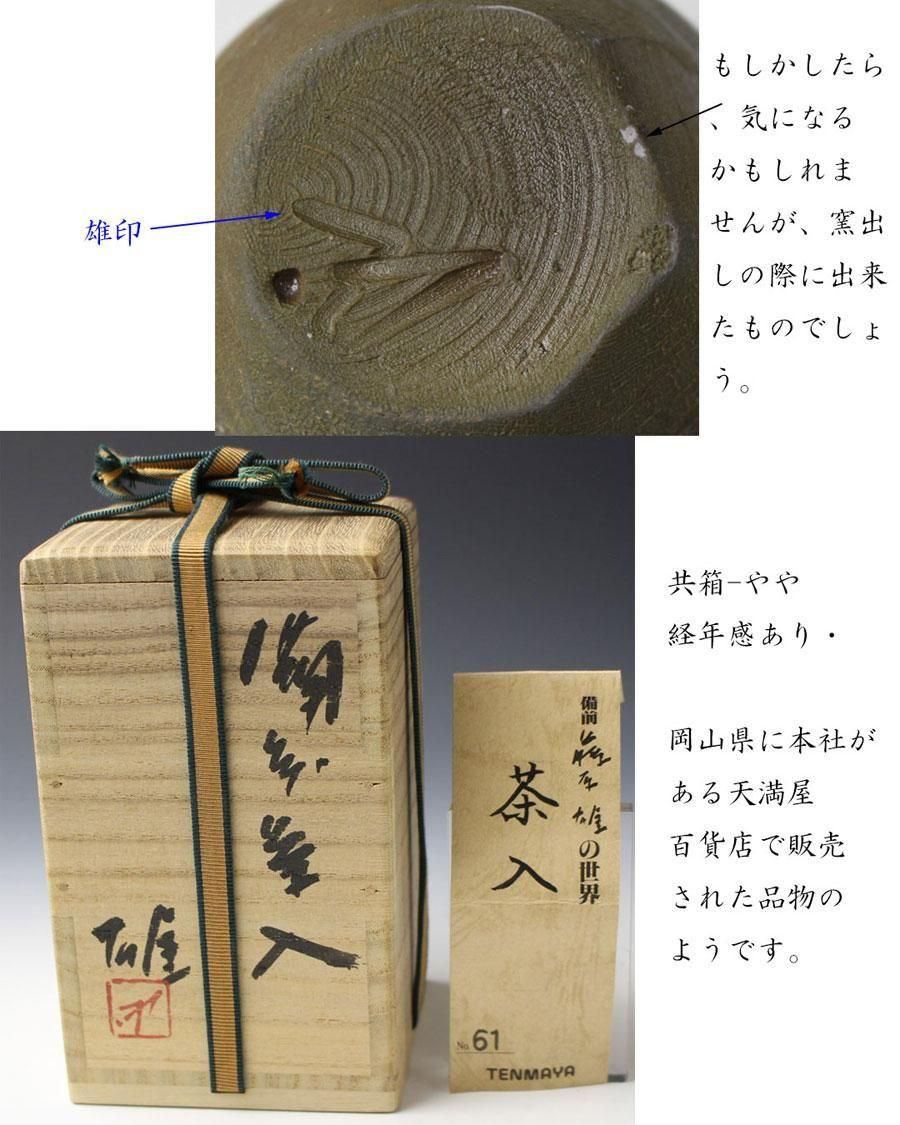 もしかしたら
、気になる
かもしれま
せんが、窯出
しの際に出来
たものでしょ
う。
雄印
備前茶入
雄
共箱−やや
経年感あり・
岡山県に本社が
ある天満屋
百貨店で販売
された品物の
ようです。
備前 藤原 雄の世界
茶入
No.61
TENMAYA